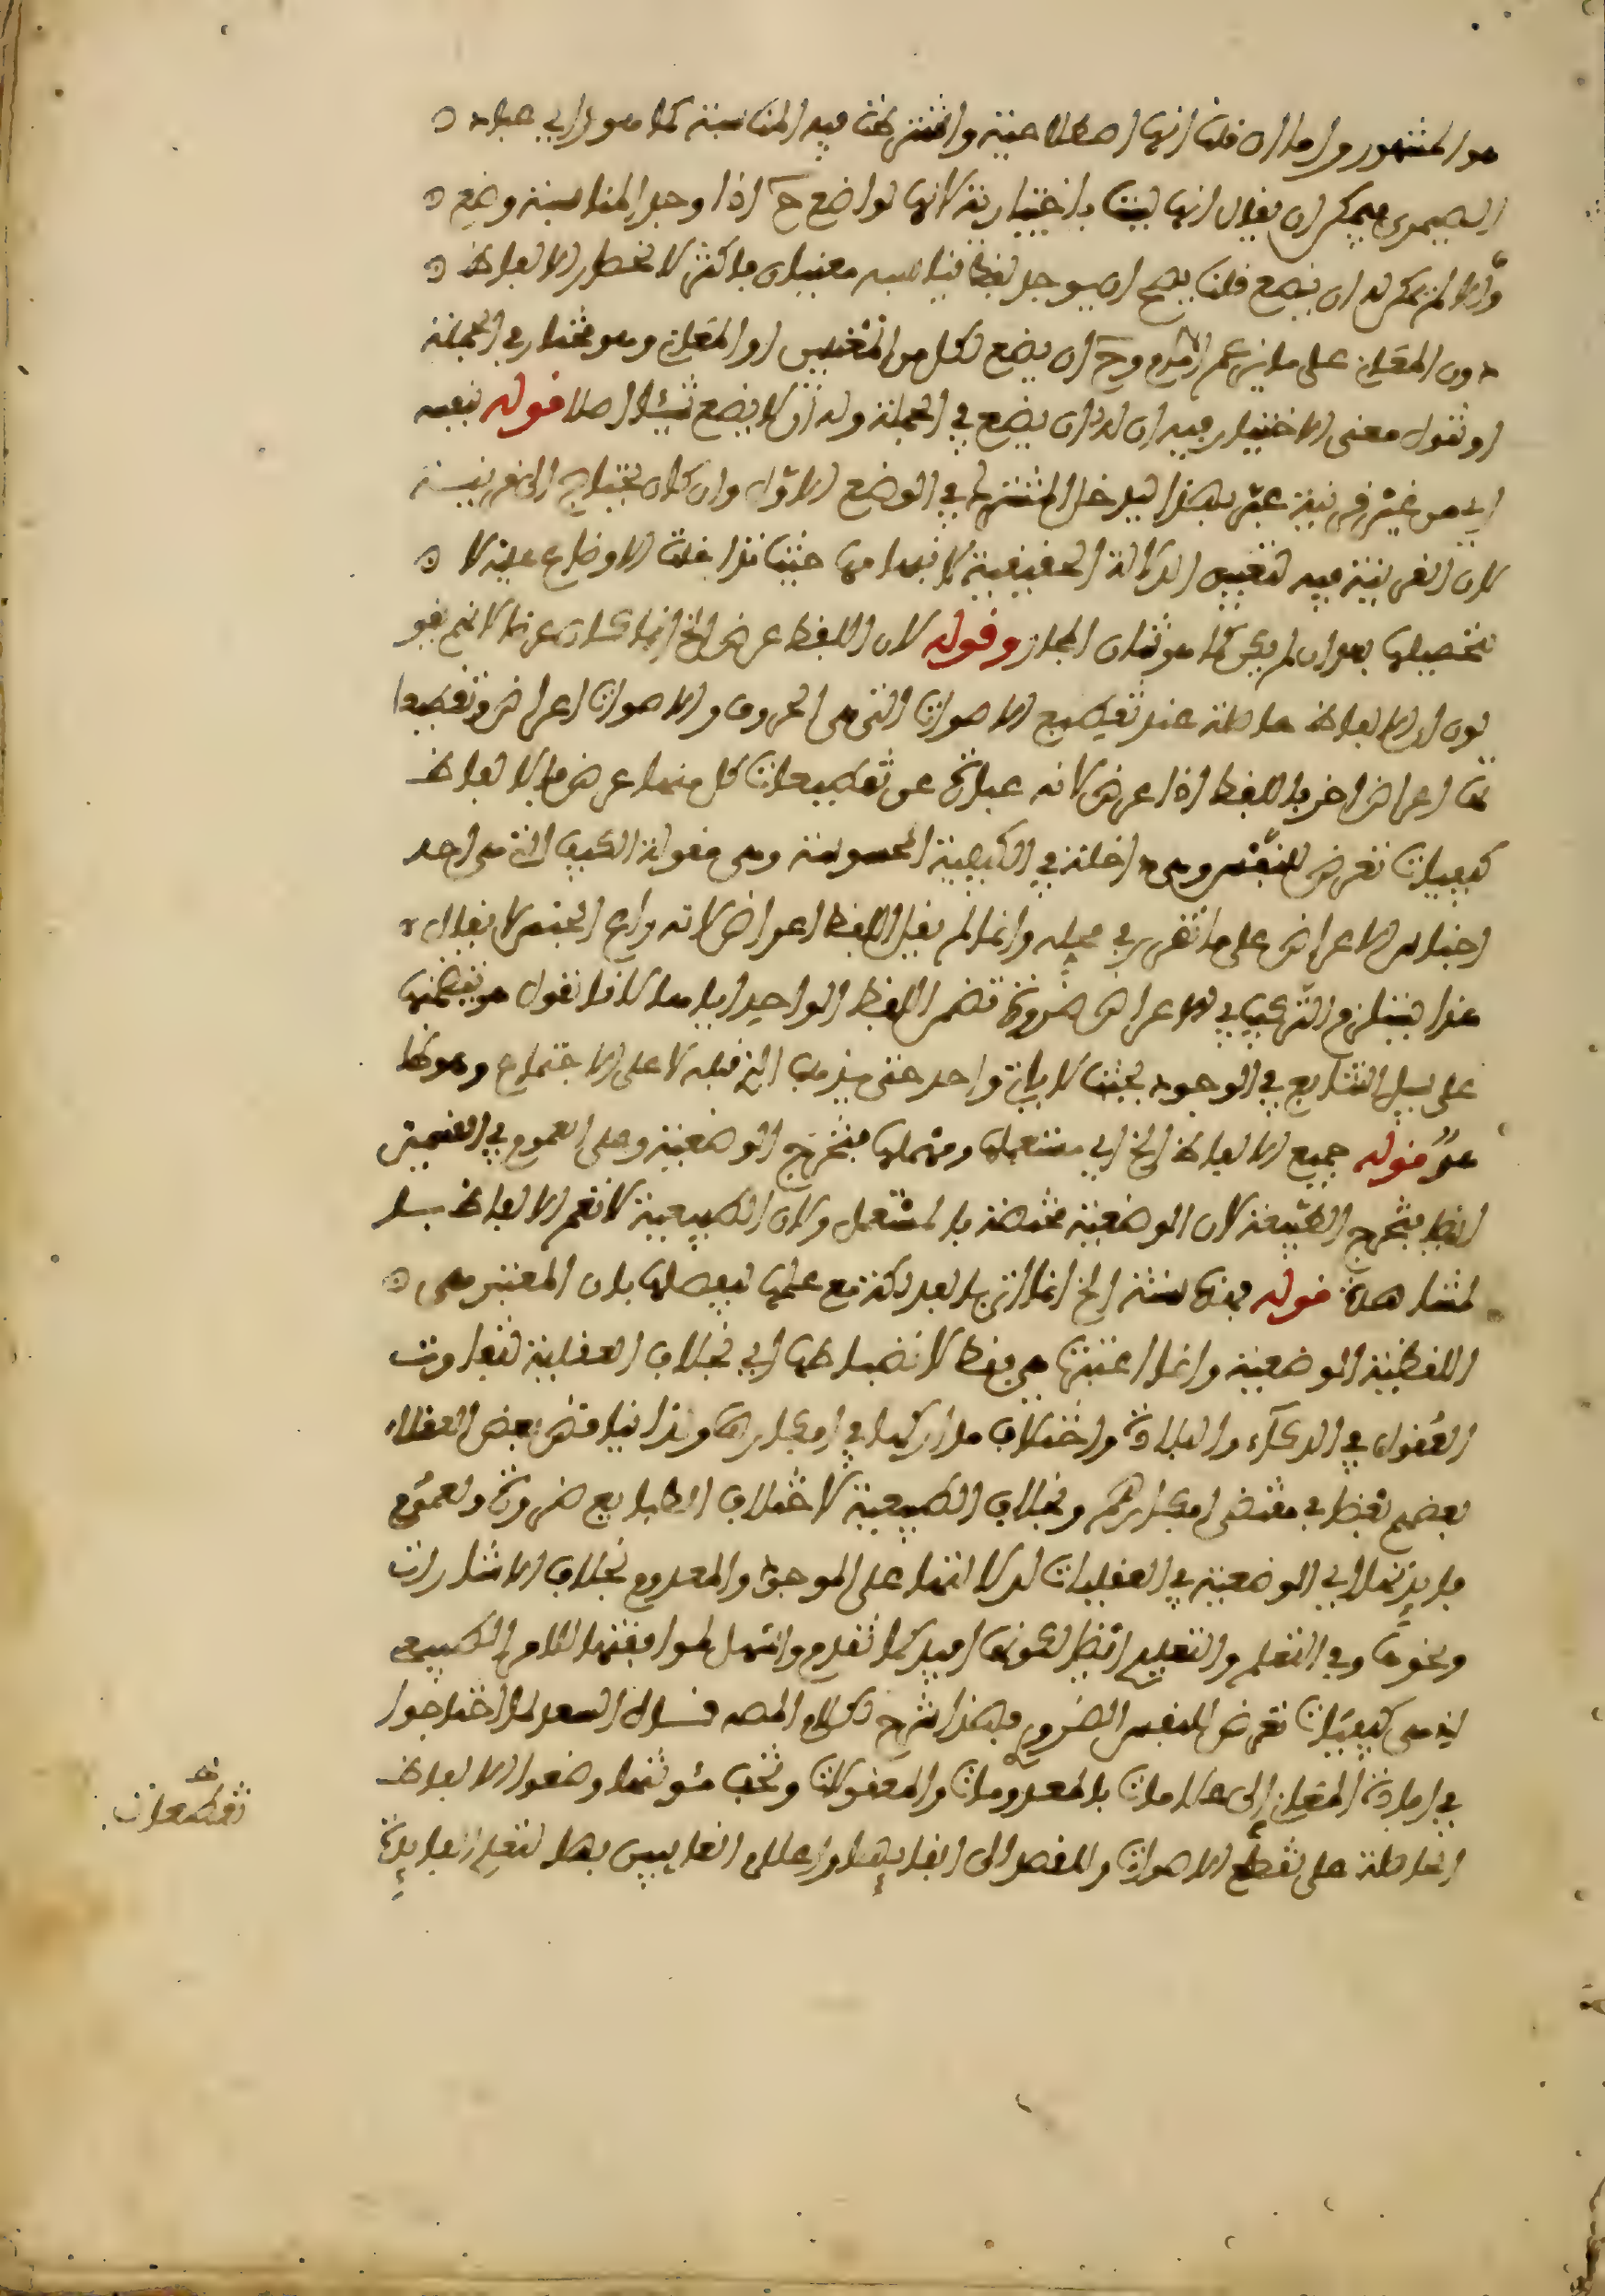 هو المشهور واما ان قلنا انها اصطلاحية واشترطنا فيه المناسبة كما هو راي عباد
الصيمري فيمكن ان يقال انها ليست باختيارية لانها لواضع ح اذا وجد المناسبة وضع
والا لم يمكن له ان يضع قلنا يصح ان يوجد لفظ يناسبه معنيان فاكثر لانحطار الالفاظ
دون المعاني على ما زعم الامام وح ان يضع لكل من المعنيين او المعاني وهو مختار في الجملة
او نقول معنى الاختيار فيه ان له ان يضع في الجملة وله ان لا يضع شيئا اصلا قوله بنفسه
اي من غير قرينة عبر بهذا ليدخل المشترك في الوضع الاول وان كان يحتاج الى قرينة
لان القرينة فيه لتعيين الدلالة الحقيقية لا فهمها حيث تزاحمت الاوضاع عليه لا
لتحصيلها بعد ان لم يكن كما هو شان المجاز وقوله لان اللفظ عرض الخ انما كان عرضا لانهم يقو
لون ان الالفاظ حاصلة عند تقطيع الاصوات التي هي الحروف والاصوات اعراض وتقطيعا
تها اعراض اخر فاللفظ اذا عرض لانه عبارة عن تقطيعات كل منها عرض فالالفاظ
كيفيات تعرض للنفس وهي داخلة في الكيفية المحسوسة وهي مقولة الكيف التي هي احد
اجناس الاعراض على ما تقرر في محله وانما لم يقل اللفظ اعراض لانه راعى الجنس لا يقال
هذا يستلزم التركيب في الاعراض ضرورة تضمن اللفظ الواحد اياها لانا نقول هو يتضمنها
على سبيل التتابع في الوجود بحيث لا ياتي واحد حتى يذهب الذي قبله لا على الاجتماع وهو ظا
هر قوله جميع الالفاظ الخ اي مستعملها ومهملها فتخرج الوضعية وعلى العموم في القسمين
ايضا فتخرج الطبيعة لان الوضعية مختصة بالمستعمل ولان الطبيعية لا تعم الالفاظ بسا
لمشاهدة قوله فهذه ستة الخ انما اتى بالفذلكة مع علمها ليفصلها بان المعتبر هي
اللفظية الوضعية وانما اعتبرها هي فقط لانضباطها اي بخلاف العقلية لتفاوت
العقول في الذكاء والبلادة واختلاف مداركها في افكارها ولذا يناقض بعض العقلاء
بعضهم بعضا في مقتضى افكارهم وبخلاف الطبيعية لاختلاف الطبايع ضرورة ولعموم
فايدتها اي الوضعية في العقليات لدلالتها على الموجود والمعدوم بخلاف الاشارات
ونحوها وفي التعلم والتعليم ايضا لكونها افيد كما تقدم واسهل لموافقتها للامر الطبيعي
اذ هي كيفيات تعرض للنفس الضروري فهذا شرح كلام المص قال السعد لما احتاجوا
في افادة المعاني الى علامات بالمعدومات والمعقولات وتخف مئونتها وضعوا الالفاظ
الحاصلة على تقطع الاصوات والمقصد الى افادتها واعلام الغايبين بها لتعليم الفايدة
تقطيعات